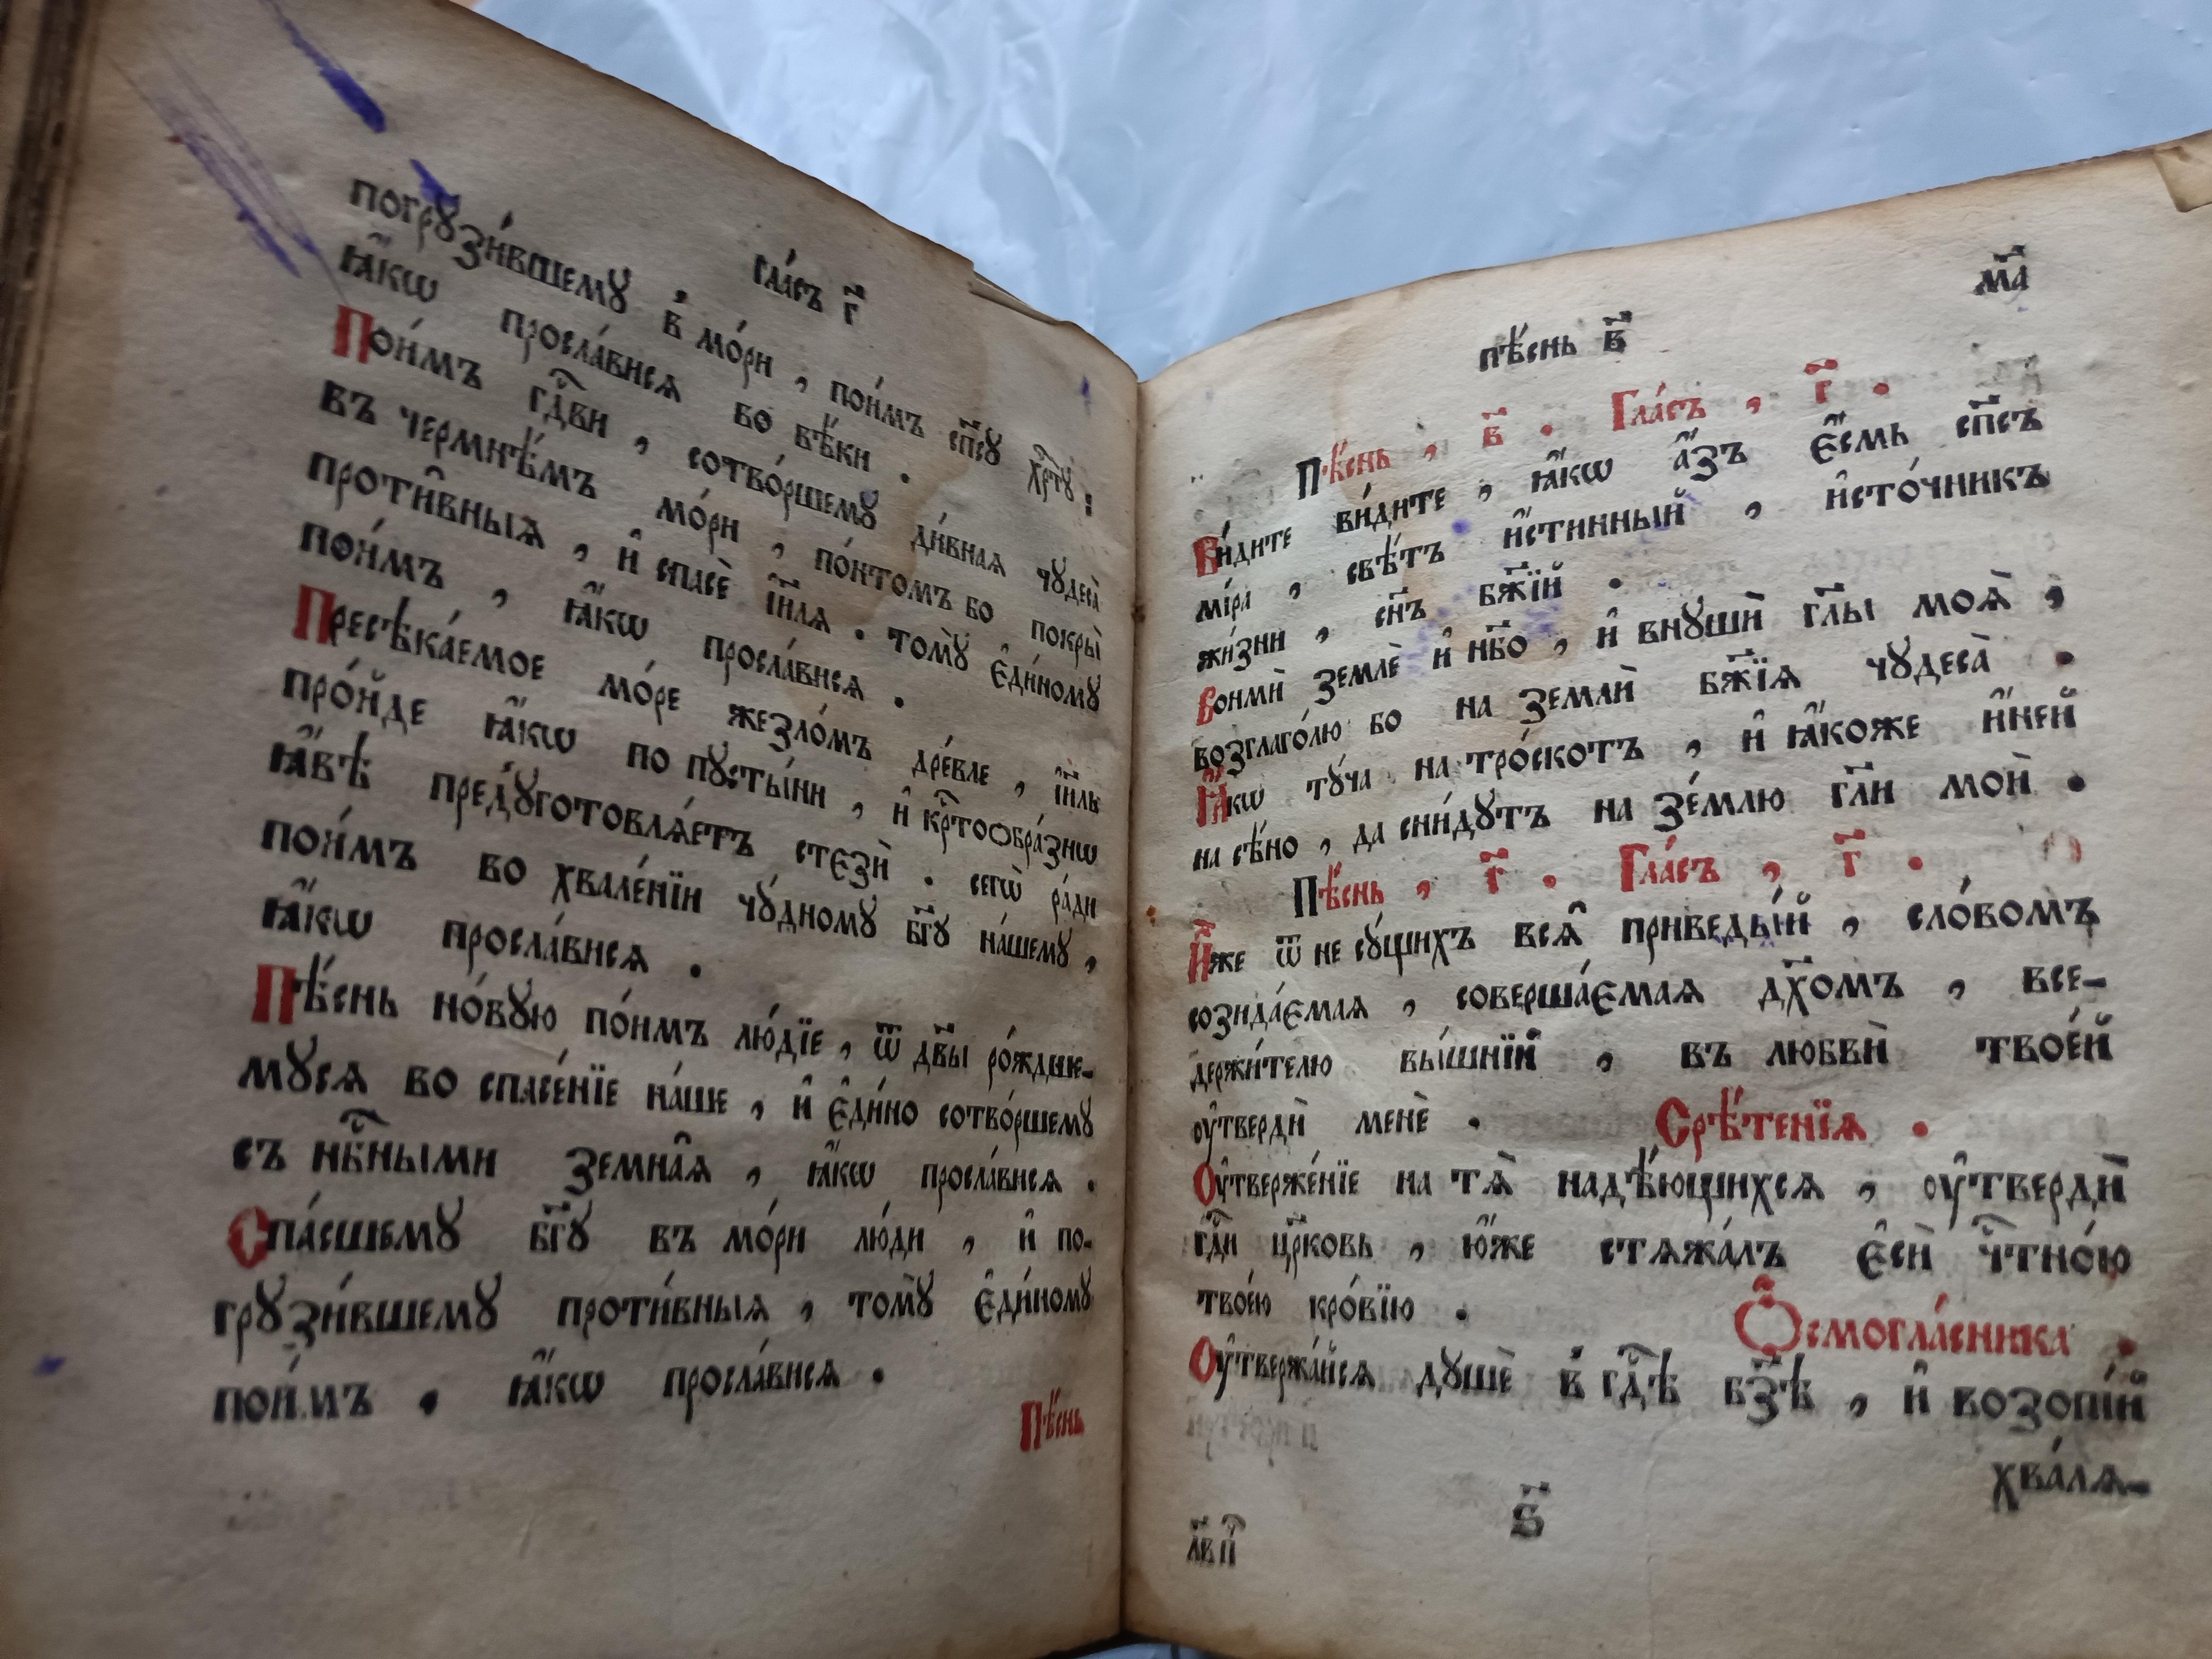 гла́съ г҃
погрꙋзи́вшемꙋ в̾ мо́ри , пои́мъ сп҃сꙋ хрⷭ҇тꙋ :
ꙗ҆́кѡ просла́висѧ во вѣ́ки .
Пои́мъ гдⷭ҇ви , сотво́ршемꙋ ди́внаѧ чꙋдеса̀
въ чермнѣ́мъ мо́ри , по́нтомъ бо покры̀
проти̑вныѧ , и҆ спасѐ і҆и҃лѧ . томꙋ̀ є҆ди́номꙋ
пои́мъ , ꙗ҆́кѡ просла́висѧ .
Пресѣка́емое мо́ре жезло́мъ дре́вле , і҆и҃ль
про́йде ꙗ҆́кѡ по пꙋсты́ни , и҆ крⷭ҇тоѻбра́знѡ
ꙗ҆́вѣ предꙋготовлѧ́етъ стєзѝ . сегѡ̀ ра́ди
пои́мъ во хвале́нїи чꙋ́дномꙋ бг҃ꙋ на́шемꙋ ,
ꙗ҆́кѡ просла́висѧ .
Пѣ́снь но́вꙋю по́имъ лю́дїе , ѿ дв҃ы ро́ждше-
мꙋсѧ во спасе́нїе на́ше , и҆ є҆ди́но сотво́ршемꙋ
съ нбⷭ҇ными земна̑ѧ , ꙗ҆́кѡ просла́висѧ .
Спа́сшемꙋ бг҃ꙋ въ мо́ри лю́ди , и҆ по-
грꙋзи́вшемꙋ проти́вныѧ , томꙋ̀ є҆ди́номꙋ
пои́мъ . ꙗ҆́кѡ просла́висѧ .
Пѣ́снь
пѣ́снь в҃ м҃а
Пѣ́снь , в҃ . Гла́съ , г҃ .
Ви́дите ви́дите , ꙗ҆́кѡ а҆́зъ є҆́смь сп҃съ
мі́ра , свѣ́тъ и҆́стинный , и҆сто́чникъ
жи́зни , сн҃ъ бж҃їй .
Вонмѝ землѐ и҆ нб҃о , и҆ внꙋшѝ гл҃ы моѧ̀ ,
возглаго́лю бо на землѝ бж҃їѧ чꙋдеса̀ .
Ꙗ҆́кѡ тꙋ́ча на тро́скотъ , и҆ ꙗ҆́коже и҆́ней
на сѣ́но , да сни́дꙋтъ на зе́млю гл҃и моѝ .
Пѣ́снь , г҃ . Гла́съ , г҃ .
И҆́же ѿ не сꙋ́щихъ всѧ̑ приведы́й , сло́вомъ
созида́ємаѧ , соверша́ємаѧ дх҃омъ , все-
держи́телю вы́шнїй , въ любвѝ твое́й
ᲂу҆твердѝ менѐ . Срѣ́тенїѧ .
Оу҆твержє́нїе на тѧ̀ надѣ́ющихсѧ , ᲂу҆твердѝ
гдⷭ҇и цр҃ковь , ю҆́же стѧжа́лъ є҆сѝ чⷭ҇тно́ю
твоє́ю кро́вїю . Ѻ҆смогла́сника .
Оу҆твержа́йсѧ дꙋшѐ в̾ гдⷭ҇ѣ бз҃ѣ , и҆ возопі́й
хва́лѧ-
лв҃п ѕ҃